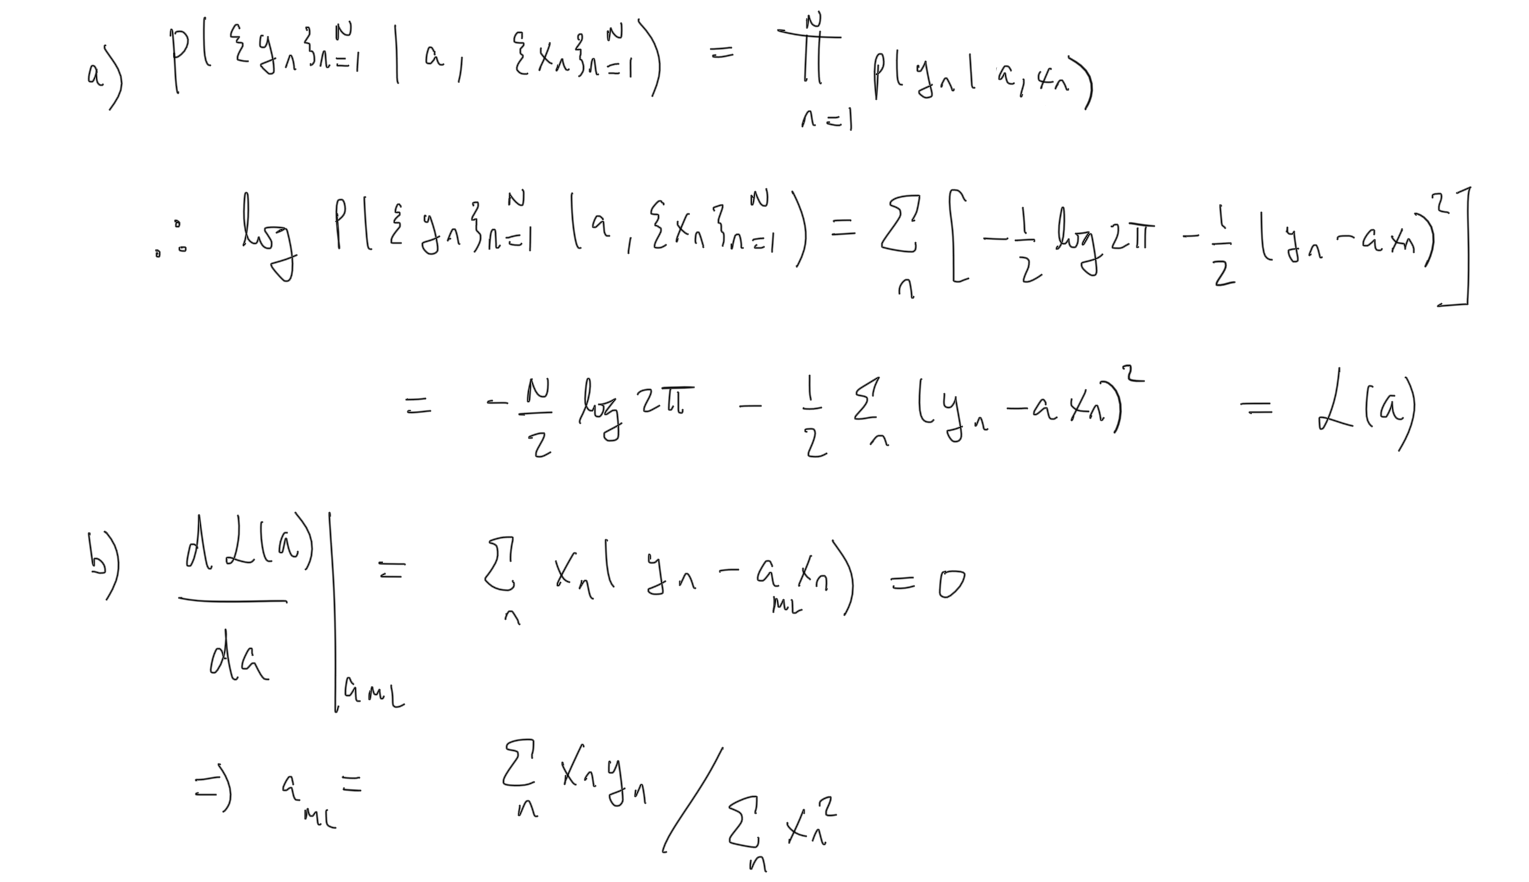 a) p({yₙ}ₙ₌₁ᴺ | a, {xₙ}ₙ₌₁ᴺ) = ∏ₙ₌₁ᴺ p(yₙ | a, xₙ)
∴ log p({yₙ}ₙ₌₁ᴺ | a, {xₙ}ₙ₌₁ᴺ) = Σₙ [-1/2 log 2π - 1/2 (yₙ - a xₙ)²]
= -N/2 log 2π - 1/2 Σₙ (yₙ - a xₙ)² = ℒ(a)
b) dℒ(a)/da |_{a_ML} = Σₙ xₙ(yₙ - a_ML xₙ) = 0
⇒ a_ML = Σₙ xₙyₙ / Σₙ xₙ²